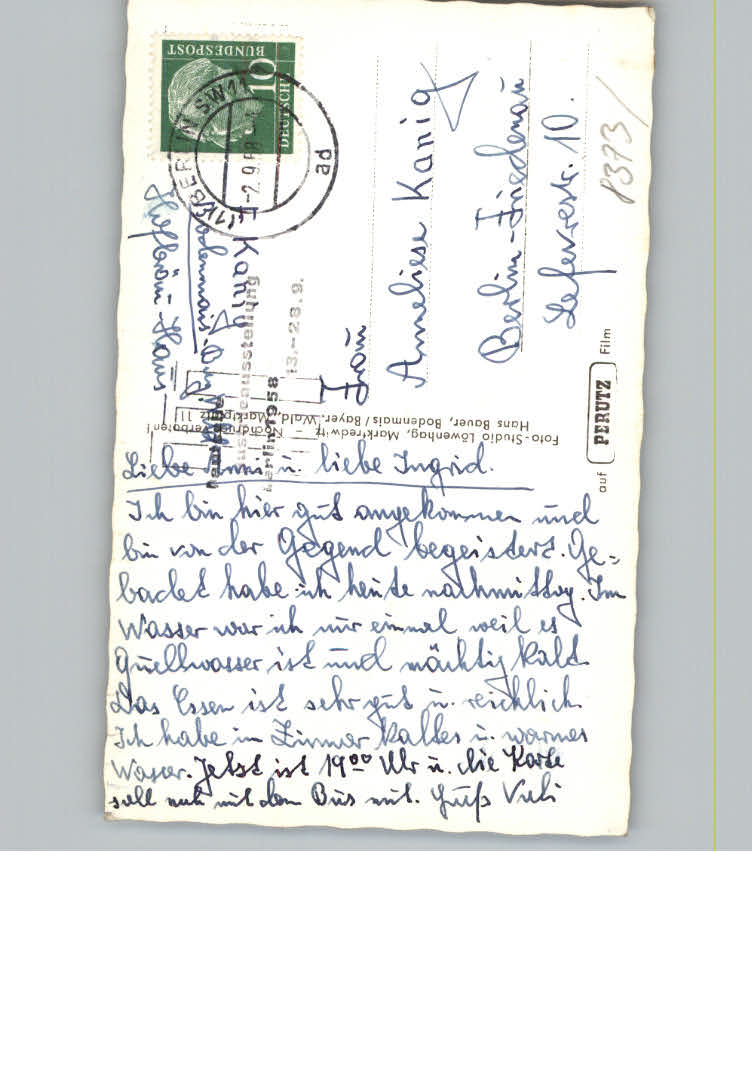 DEUTSCHE
BUNDESPOST
10
(1) BERLIN SW 11
-2.9.58
ad
Berlin 1958
13.-28.9.
Kanig
Bodenmais
Hofbräu-Haus
Frau
Anneliese Kanig
Berlin-Friedenau
Lefevrestr. 10.
8373
Foto-Studio Löwenhag, Marktredwitz – Nachdruck verboten!
Hans Bauer, Bodenmais/Bayer. Wald, Marktplatz 11
auf PERUTZ Film
Liebe Anni u. liebe Ingrid.
Ich bin hier gut angekommen und
bin von der Gegend begeistert. Ge-
badet habe ich heute nachmittag. Im
Wasser war ich nur einmal weil es
Quellwasser ist und mächtig kalt.
Das Essen ist sehr gut u. reichlich.
Ich habe im Zimmer kaltes u. warmes
Wasser. Jetzt ist 19⁰⁰ Uhr u. die Karte
soll noch mit dem Bus mit. Gruß